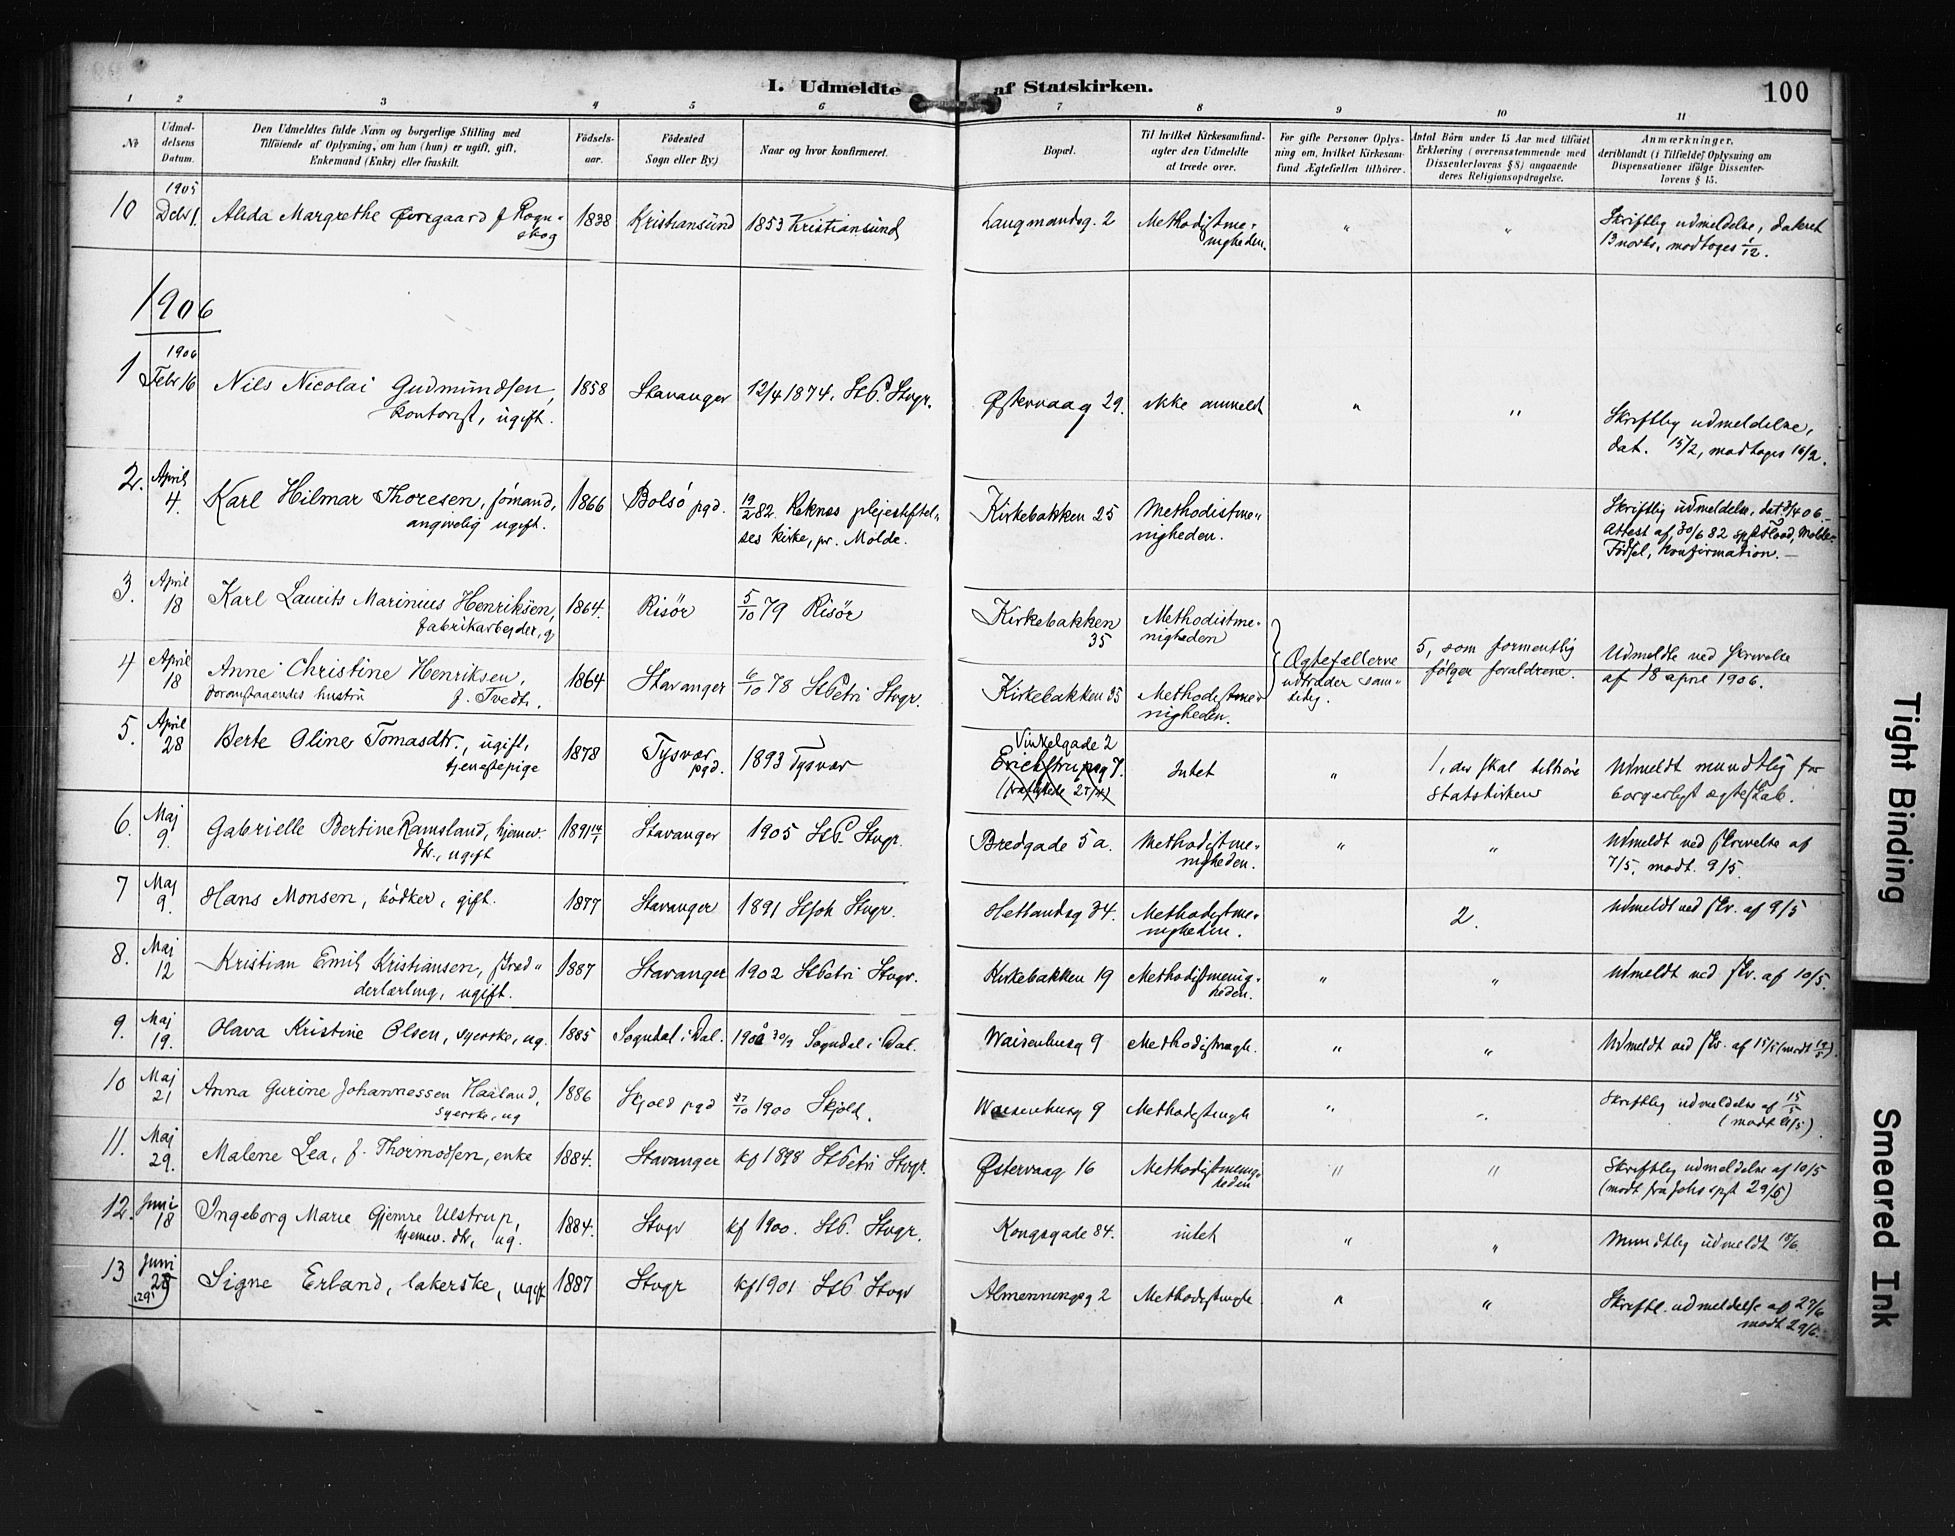 I. Udmeldte af Statskirken.
100
1 2 3 4 5 6 7 8 9 10 11
№
Udmel-
delsens
Datum.
Den Udmeldtes fulde Navn og borgerlige Stilling med
Tilføiende af Oplysning, om han (hun) er ugift, gift,
Enkemand (Enke) eller fraskilt.
Fødsels-
aar.
Fødested
Sogn eller By)
Naar og hvor konfirmeret.
Bopæl.
Til hvilket Kirkesamfund-
agter den Udmeldte
at træde over.
For gifte Personer Oplys-
ning om, hvilket Kirkesam-
fund Ægtefællen tilhører.
Antal Børn under 15 Aar med tilføiet
Erklæring (overensstemmende med
Dissenterlovens § 8) angaaende
deres Religionsopdragelse.
Anmærkninger,
deriblandt (i Tilfælde) Oplysning om
Dispensationer ifølge Dissenter-
lovens § 15.
1905
10 Debr 1. Alida Margrethe Øvregaard f Rogn-
skog
1838 Kristiansund 1853 Kristiansund
Laugmandsg. 2 Methodistme-
nigheden. " "
Skriftlig udmeldelse, dateret
13 novbr, modtoges 1/12.
1906
1906
1 Febr 16 Nils Nicolai Gudmundsen,
kontorist, ugift.
1858 Stavanger 12/4 1874. StP. Stvgr.
Østervaag 29. ikke anmeldt " "
Skriftlig udmeldelse,
dat. 15/2, modtoges 16/2.
2. April
4. Karl Hilmar Thoresen, sømand,
angivelig ugift.
1866 Bolsø pgd. 19/2 82. Reknes plejestiftel-
ses kirke, pr. Molde.
Kirkebakken 25 Methodistme-
nigheden.
Skriftlig udmeldelse, dat. 3/4 06.
Attest af 30/6 82 Flood, Molde
Fødsel, Konfirmation. —
3. April
18 Karl Laurits Marinius Henriksen,
fabrikarbejder, g
1864. Risør 5/10 79 Risør
Kirkebakken
35 Methodistme-
nigheden
4 April
18 Anne Christine Henriksen,
foranstaaendes hustru f. Tvedt.
1864 Stavanger 6/10 78 StPetri Stvgr.
Kirkebakken 35 Methodistme-
nigheden.
Ægtefællerne
udtræder sam-
tidig.
5, som formentlig
følger forældrene.
Udmeldte ved skrivelse
af 18 april 1906.
5. April
28 Berte Oline Tomasdtr., ugift,
tjenestepige
1878 Tysvær
pgd. 1893 Tysvær
Vinkelgade 2
Erichstrupsg 7.
Intet " 1, der skal tilhøre
Statskirken
Udmeldt mundtlig for
borgerligt ægteskab.
6. Maj
9. Gabrielle Bertine Ramsland, hjemev.
dtr., ugift
1891 14/1 Stavanger 1905 StP. Stvgr.
Bredgade 5 a. Methodistme-
nigheden. " "
Udmeldt ved skrivelse af
7/5, modt. 9/5.
7 Maj
9. Hans Monsen, bødker, gift.
1877 Stavanger 1891 StJoh Stvgr.
Hetlandsg 34. Methodistme-
nigheden. 2.
Udmeldt ved skr. af 9/5
8. Maj
12 Kristian Emil Kristiansen, skræd-
derlærling, ugift.
1887 Stavanger 1902 StPetri Stvgr.
Kirkebakken 19 Methodistmenig-
heden. " "
Udmeldt ved skr. af 10/5.
9. Maj
19. Olava Kristine Olsen, syerske, ug.
1885 Sogndal i Dal. 1900 30/9 Sogndal i Dal.
Waisenhusg 9 Methodistmgh. " "
Udmeldt ved skr. af 15/5 (modt 19/5).
10 Maj
21 Anna Gurine Johannessen Haaland,
syerske, ug
1886 Skjold pgd 1900 Skjold.
Waisenhusg 9 Methodistmgh " "
Skriftlig udmeldelse af 15/5
(modt 21/5).
11. Maj
29. Malene Lea, f. Thormodsen, enke
1884. Stavanger kf 1898 StPetri Stvgr.
Østervaag 16 Methodistmenig-
heden " "
Skriftlig udmeldelse af 10/5
(modt fra Johs spgt 29/5)
12. Juni
18 Ingeborg Marie Gjemre Ulstrup,
hjemev. dtr, ug.
1884. Stvgr kf 1900. StP. Stvgr.
Kongsgade 84. intet " "
Mundtlig udmeldt 18/6
13 Juni
28
(29) Signe Erland, lakerske, ugift
1887 Stvgr kf 1901 StP Stvgr
Almenningsg 2 Methodistmgh. " "
Skriftl. udmeldelse af 27/6
modt 29/6.
Tight Binding
Smeared Ink